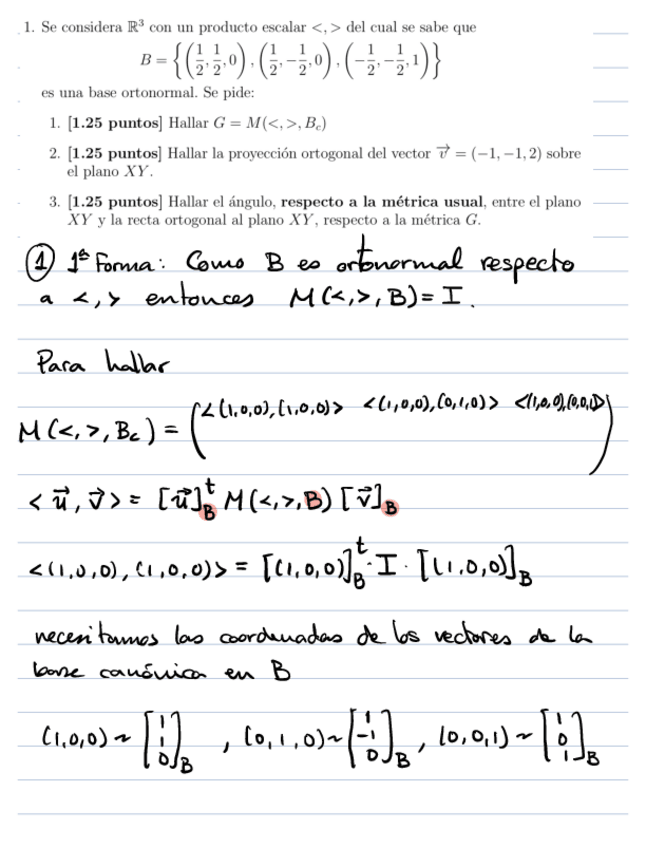 1. Se considera ℝ³ con un producto escalar <,> del cual se sabe que
B = { (1/2, 1/2, 0), (1/2, -1/2, 0), (-1/2, -1/2, 1) }
es una base ortonormal. Se pide:
1. [1.25 puntos] Hallar G = M(<,>, B_c)
2. [1.25 puntos] Hallar la proyección ortogonal del vector v⃗ = (-1, -1, 2) sobre
el plano XY.
3. [1.25 puntos] Hallar el ángulo, respecto a la métrica usual, entre el plano
XY y la recta ortogonal al plano XY, respecto a la métrica G.
① 1ª Forma: Como B es ortonormal respecto
a <,> entonces M(<,>,B)=I.
Para hallar
M(<,>,B_c) = ( <(1,0,0),(1,0,0)> <(1,0,0),(0,1,0)> <(1,0,0),(0,0,1)> )
<u⃗,v⃗> = [u⃗]_B^t M(<,>,B) [v⃗]_B
<(1,0,0),(1,0,0)> = [(1,0,0)]_B^t · I · [(1,0,0)]_B
necesitamos las coordenadas de los vectores de la
base canónica en B
(1,0,0) ~ [1 1 0]_B , (0,1,0) ~ [1 -1 0]_B , (0,0,1) ~ [1 0 1]_B